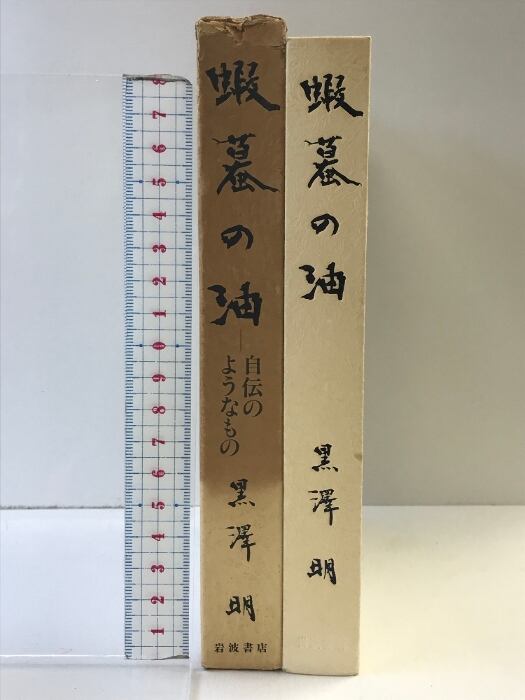 蝦蟇の油
―自伝の
ようなもの
黒澤 明
岩波書店
蝦蟇の油
黒澤 明
8
7
6
5
4
3
2
1
0
9
8
7
6
5
4
3
2
1